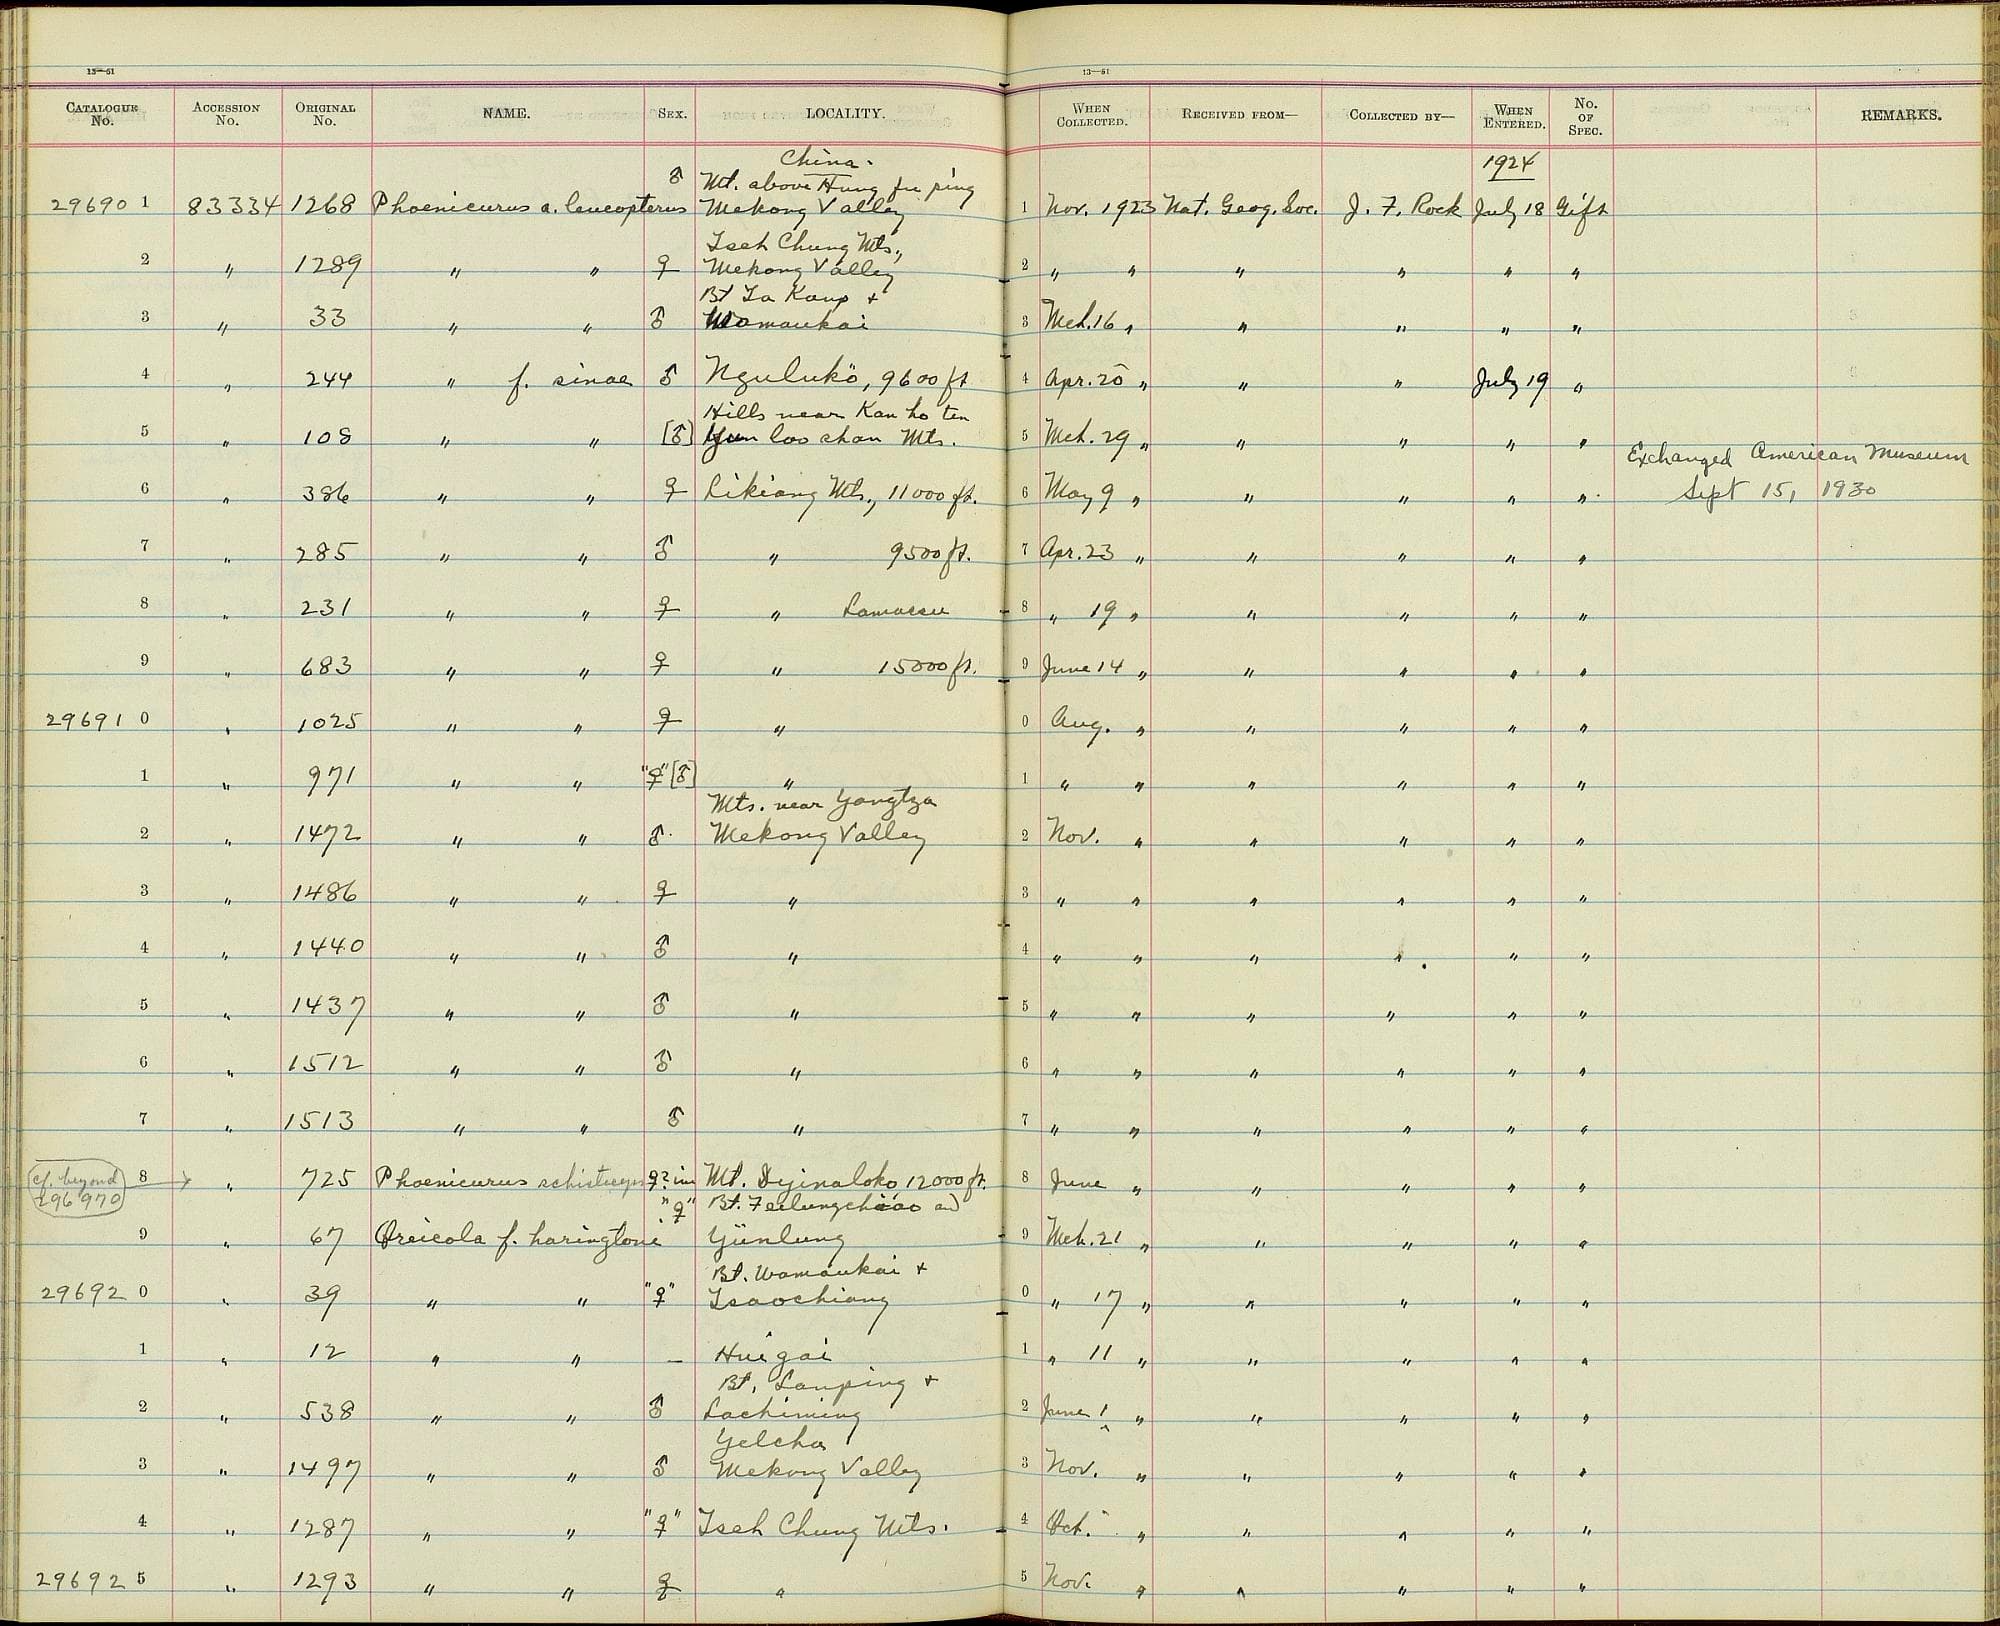 13—51 13—51
CATALOGUE No. ACCESSION No. ORIGINAL No. NAME. SEX. LOCALITY. WHEN COLLECTED. RECEIVED FROM— COLLECTED BY— WHEN ENTERED. No. OF SPEC. REMARKS.
China. 1924
♂ Mt. above Hung fu ping
29690 1 83334 1268 Phoenicurus a. leucopterus Mekong Valley 1 Nov. 1923 Nat. Geog. Soc. J. F. Rock July 18 Gift
Tseh Chung Mts.,
2 " 1289 " " ♀ Mekong Valley 2 " " " " " "
Bt Ta Kang +
3 " 33 " " ♂ Womaukai 3 Mch. 16 " " " " "
4 " 244 " f. sinae ♂ Ngulukö, 9600 ft 4 Apr. 20 " " " July 19 "
Hills near Kan ho ten
5 " 108 " " [♂] Yun loo shan Mts. 5 Mch. 29 " " " " "
Exchanged American Museum
6 " 386 " " ♀ Likiang Mts., 11000 ft. 6 May 9 " " " " " Sept 15, 1930
7 " 285 " " ♂ " 9500 ft. 7 Apr. 23 " " " " "
8 " 231 " " ♀ " 8 " 19 " " " " "
9 " 683 " " ♀ " 15000 ft. 9 June 14 " " " " "
29691 0 " 1025 " " ♀ " 0 Aug. " " " " "
1 " 971 " " "♀" [♂] " 1 " " " " " "
Mts. near Yangtza
2 " 1472 " " ♂ Mekong Valley 2 Nov. " " " " "
3 " 1486 " " ♀ " 3 " " " " " "
4 " 1440 " " ♂ " 4 " " " " " "
5 " 1437 " " ♂ " 5 " " " " " "
6 " 1512 " " ♂ " 6 " " " " " "
7 " 1513 " " ♂ " 7 " " " " " "
cf. beyond
296970 8 " 725 Phoenicurus schisticeps ♀? im Mt. Dyinaloko 12000 ft. 8 June " " " " "
"♀" Bt. Feilungchiao and
9 " 67 Oreicola f. haringtoni Yünlung 9 Mch. 21 " " " " "
Bt. Womaukai +
29692 0 " 39 " " "♀" Tsaochiang 0 " 17 " " " " "
1 " 12 " " – Huigai 1 " 11 " " " " "
Bt. Lanping +
2 " 538 " " ♂ Lachiming 2 June 1 " " " " "
Yelcha
3 " 1497 " " ♂ Mekong Valley 3 Nov. " " " " "
4 " 1287 " " "♀" Tseh Chung Mts. 4 Oct. " " " " "
29692 5 " 1293 " " ♀ " 5 Nov. " " " " "